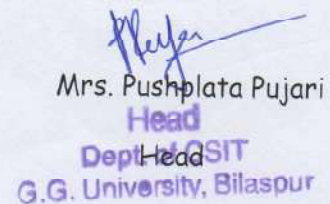 Mrs. Pushplata Pujari
Head
Dept. of CSIT
Head
G.G. University, Bilaspur